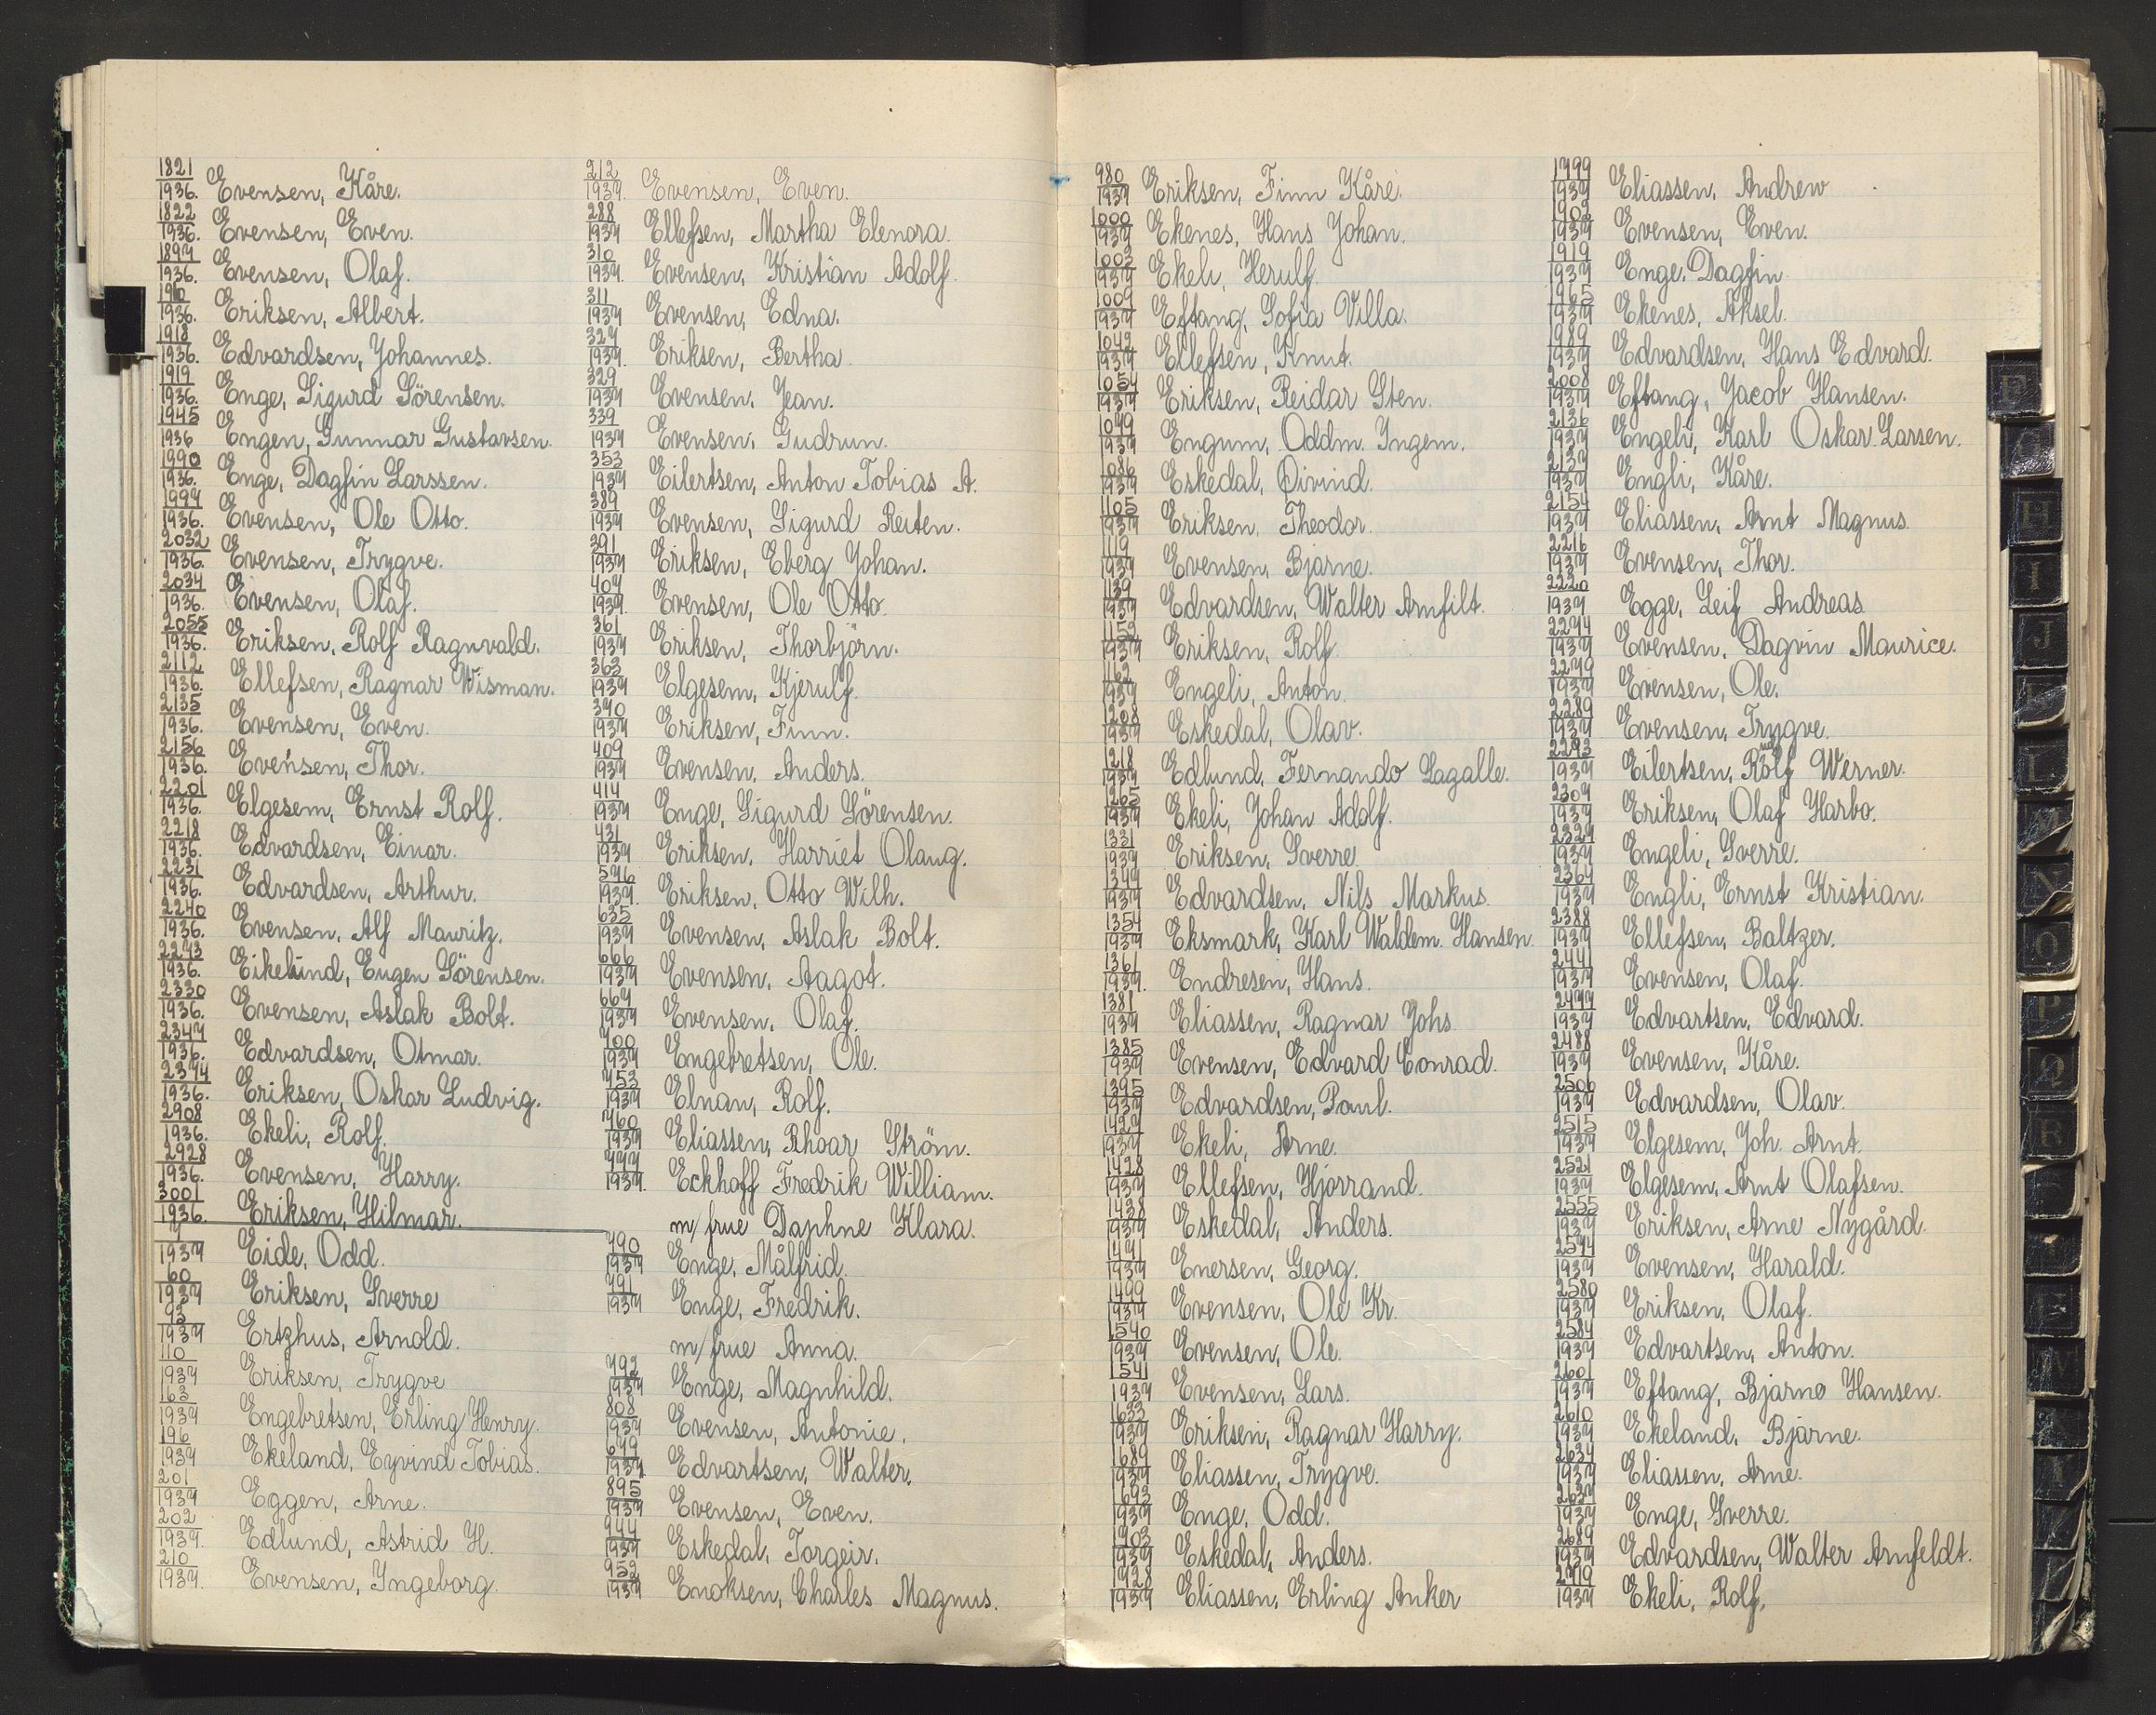 1821
1936. Evensen, Kåre.
1822
1936. Evensen, Even.
1897
1936. Evensen, Olaf.
1936. Eriksen, Albert.
1918
1936. Edvardsen, Johannes.
1919
1936. Enge, Sigurd Sörensen.
1945
1936 Engen, Gunnar Gustavsen.
1990
1936. Enge, Dagfin Larssen.
1997
1936. Evensen, Ole Otto.
2032
1936. Evensen, Trygve.
2034
1936. Evensen, Olaf.
2055
1936. Eriksen, Rolf Ragnvald.
2112
1936. Ellefsen, Ragnar Wisman.
2135
1936. Evensen, Even.
2156
1936. Evensen, Thor.
2201
1936. Elgesem, Ernst Rolf.
2218
1936. Edvardsen, Einar.
2231
1936. Edvardsen, Arthur.
2240
1936. Evensen, Alf Mauritz.
2273
1936. Eikelund, Eugen Sörensen.
2330
1936. Evensen, Aslak Bolt.
2347
1936. Edvardsen, Otmar.
2374
1936. Eriksen, Oskar Ludvig.
2908
1936. Ekeli, Rolf.
2928
1936. Evensen, Harry.
3001
1936. Eriksen, Hilmar.
7
1937 Eide, Odd.
60
1937 Eriksen, Sverre
93
1937 Ertzhus, Arnold.
110
1937 Eriksen, Trygve
163
1937 Engebretsen, Erling Henry.
196
1937 Ekeland, Eyvind Tobias.
201
1937 Eggen, Arne.
202
1937. Edlund, Astrid H.
210
1937. Evensen, Ingeborg.
212
1937. Evensen, Even.
288
1937 Ellefsen, Martha Elenora.
310
1937. Evensen, Kristian Adolf.
311
1937 Evensen, Edna.
327
1937. Eriksen, Bertha
329
1937 Evensen, Jean.
339
1937 Evensen, Gudrun.
353
1937 Eilertsen, Anton Tobias A.
389
1937 Evensen, Sigurd Reiten.
391
1937 Eriksen, Eberg Johan.
407
1937. Evensen, Ole Otto.
361
1937 Eriksen, Thorbjörn.
363
1937 Elgesem, Kjerulf.
370
1937 Eriksen, Finn.
409
1937 Evensen, Anders.
414
1937 Enge, Sigurd Sörensen.
431
1937 Eriksen, Harriet Olaug.
576
1937. Eriksen, Otto Wilh.
635
1937 Evensen, Aslak Bolt.
666
1937 Evensen, Aagot.
667
1937 Evensen, Olaf.
700
1937 Engebretsen, Ole.
753
1937 Elnan, Rolf.
760
1937 Eliassen, Rhoar Ström.
777
1937. Eckhoff Fredrik William.
m/ frue Daphne Klara.
790
1937 Enge, Målfrid.
791
1937 Enge, Fredrik.
m/ frue Anna.
792
1937 Enge, Magnhild.
808
1937 Evensen, Antonie.
1937 Edvartsen, Walter.
895
1937 Evensen, Even.
944
1937 Eskedal, Torgeir.
952
1937 Enoksen, Charles Magnus.
980
1937 Eriksen, Finn Kåre.
1000
1937 Ekenes, Hans Johan.
1003
1937 Ekeli, Herulf.
1009
1937 Eftang, Sofia Villa.
1042
1937 Ellefsen, Knut.
1054
1937 Eriksen, Reidar Sten.
1079
1937 Engum, Oddm. Ingem.
1086
1937 Eskedal, Öivind.
1105
1937 Eriksen, Theodor.
1119
1937 Evensen, Bjarne.
1139
1937 Edvardsen, Walter Arnfilt.
1159
1937 Eriksen, Rolf.
1162
1937 Engeli, Anton.
1208
1937 Eskedal, Olav.
1218
1937 Edlund, Fernando Lagalle.
1265
1937 Ekeli, Johan Adolf.
1331
1937 Eriksen, Sverre.
1349
1937 Edvardsen, Nils Markus.
1354
1937 Eksmark, Karl Waldem. Hansen.
1361
1937. Endresen, Hans.
1381
1937 Eliassen, Ragnar Johs
1385
1937 Evensen, Edvard Conrad.
1395
1937 Edvardsen, Paul.
1427
1937 Ekeli, Arne.
1428
1937 Ellefsen, Hjorrand.
1438
1937 Eskedal, Anders.
1491
1937 Enersen, Georg.
1499
1937 Evensen, Ole Kr.
1540
1937 Evensen, Ole.
1541
1937 Evensen, Lars.
1633
1937 Eriksen, Ragnar Harry.
1689
1937 Eliassen, Trygve.
1693
1937 Enge, Odd.
1937 Eskedal, Anders.
1937 Eliassen, Erling Anker
1799
1937 Eliassen, Andrew
1903
1937 Evensen, Even.
1919
1937 Enge, Dagfin.
1965
1937 Ekenes, Aksel.
1989
1937 Edvardsen, Hans Edvard.
2008
1937 Eftang, Jacob Hansen.
2136
1937 Engeli, Karl Oskar Larsen.
2137
1937 Engli, Kåre.
2154
1937 Eliassen, Arnt Magnus.
2216
1937 Evensen, Thor.
2220
1937 Egge, Leif Andreas
2274
1937 Evensen, Dagvin Maurice.
2279
1937 Evensen, Ole.
2289
1937 Evensen, Trygve.
2293
1937 Eilertsen, Rolf Werner.
2307
1937 Eriksen, Olaf Harbo.
2327
1937 Engeli, Sverre.
2364
1937 Engli, Ernst Kristian.
2388
1937 Ellefsen, Baltzer.
2441
1937 Evensen, Olaf.
2477
1937 Edvartsen, Edvard.
2488
1937 Evensen, Kåre.
2506
1937 Edvardsen, Olav.
2515
1937 Elgesem, Joh. Arnt.
2521
1937 Elgesem, Arnt Olafsen.
2555
1937 Eriksen, Arne Nygård.
2574
1937 Evensen, Harald.
2580
1937 Eriksen, Olaf.
2584
1937 Edvartsen, Anton.
2601
1937 Eftang, Bjarne Hansen.
2610
1937 Ekeland, Bjarne.
2634
1937 Eliassen, Arne.
2637
1937 Enge, Sverre.
2689
1937 Edvardsen, Walter Arnfeldt.
2719
1937 Ekeli, Rolf.
F
G
H
I
J
K
L
M
N
O
P
Q
R